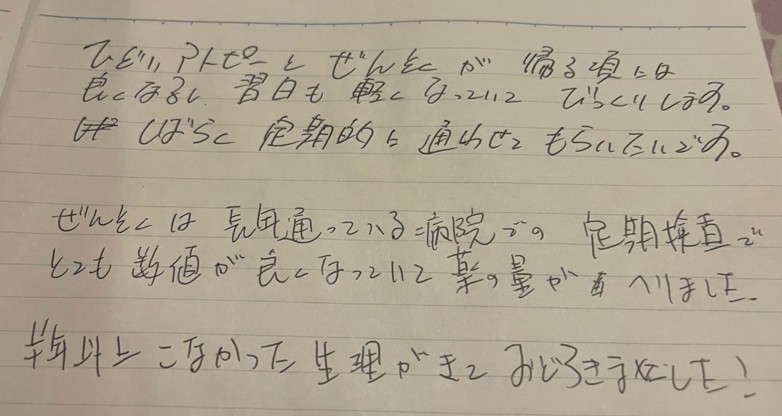 ひどいアトピーとぜんそくが帰る頃には
良くなるし、翌日も軽くなっていてびっくりします。
しばらく定期的に通わせてもらいたいです。
ぜんそくは長年通っている病院での定期検査で
とても数値が良くなっていて薬の量がへりました。
半年以上こなかった生理がきておどろきました!